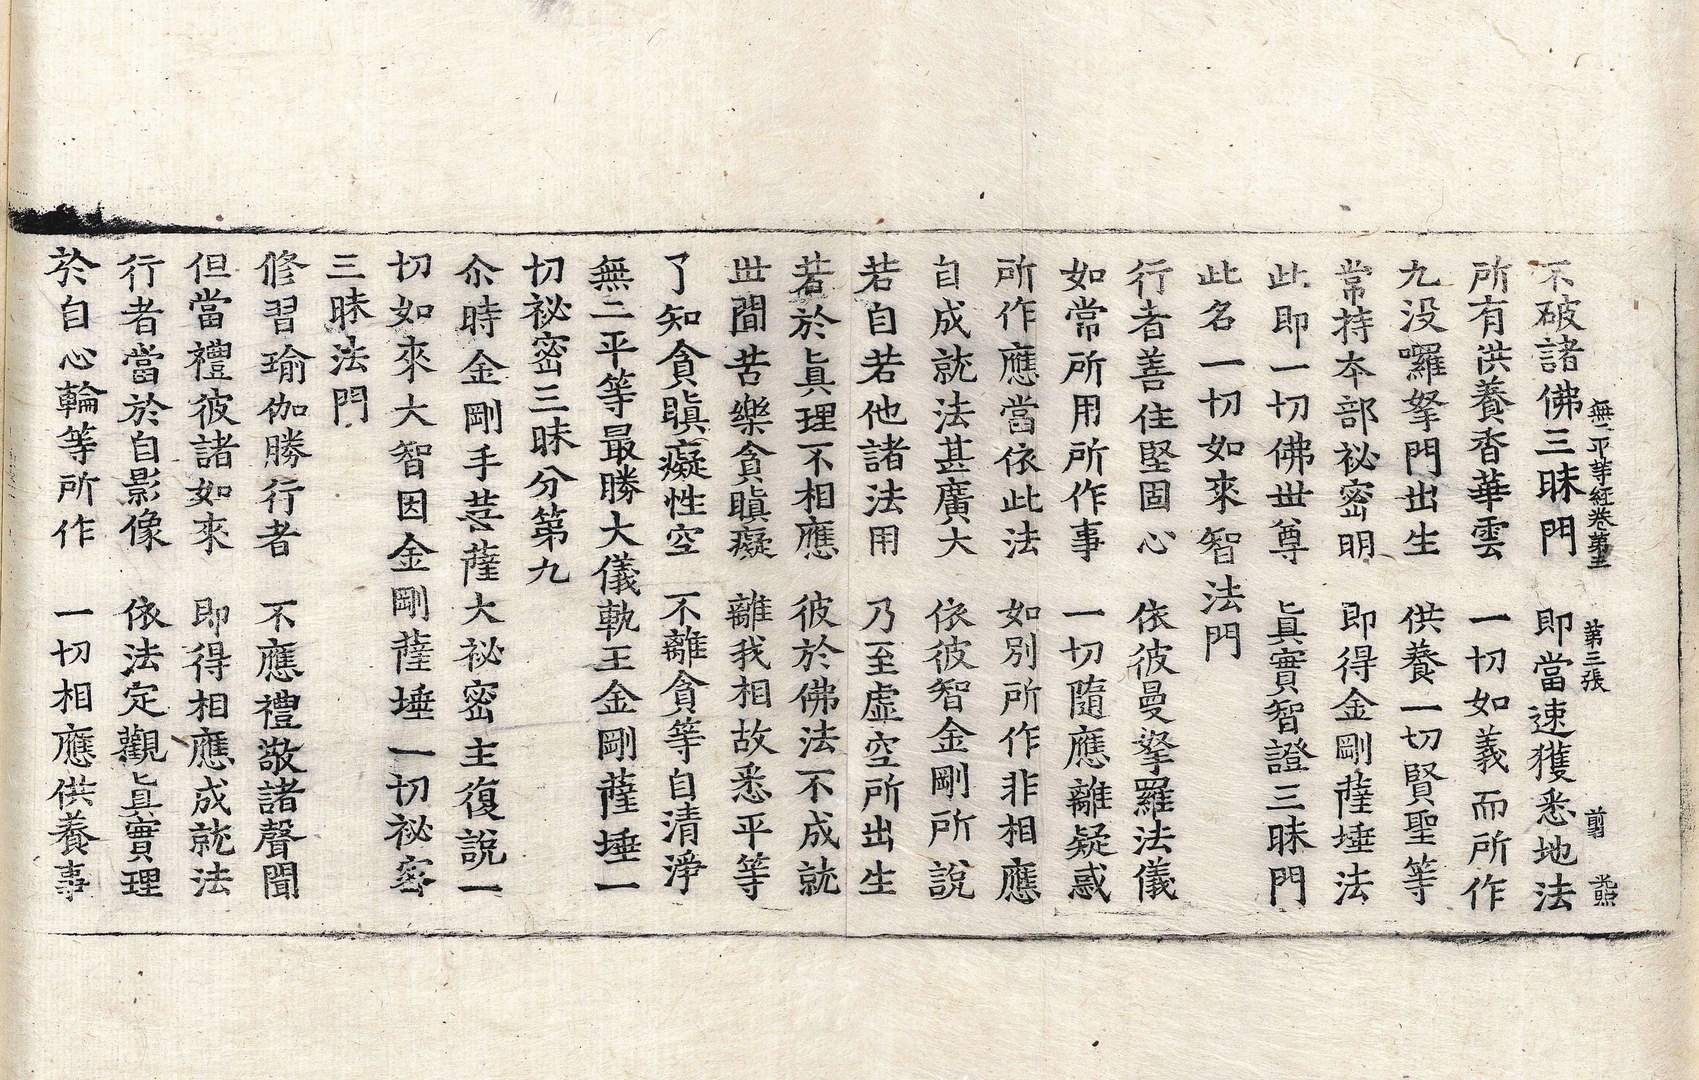 無二平等經卷第五 第三張 翦 㷱
不破諸佛三昧門 即當速獲悉地法
所有供養香華雲 一切如義而所作
九没囉拏門出生 供養一切賢聖等
常持本部祕密明 即得金剛薩埵法
此即一切佛世尊 眞實智證三昧門
此名一切如來智法門
行者善住堅固心 依彼曼拏羅法儀
如常所用所作事 一切隨應離疑惑
所作應當依此法 如別所作非相應
自成就法甚廣大 依彼智金剛所說
若自若他諸法用 乃至虚空所出生
若於眞理不相應 彼於佛法不成就
世閒苦樂貪瞋癡 離我相故悉平等
了知貪瞋癡性空 不離貪等自清淨
無二平等最勝大儀軌王金剛薩埵一
切祕密三昧分第九
尒時金剛手菩薩大祕密主復說一
切如來大智因金剛薩埵一切祕密
三昧法門
修習瑜伽勝行者 不應禮敬諸聲聞
但當禮彼諸如來 即得相應成就法
行者當於自影像 依法定觀眞實理
於自心輪等所作 一切相應供養事